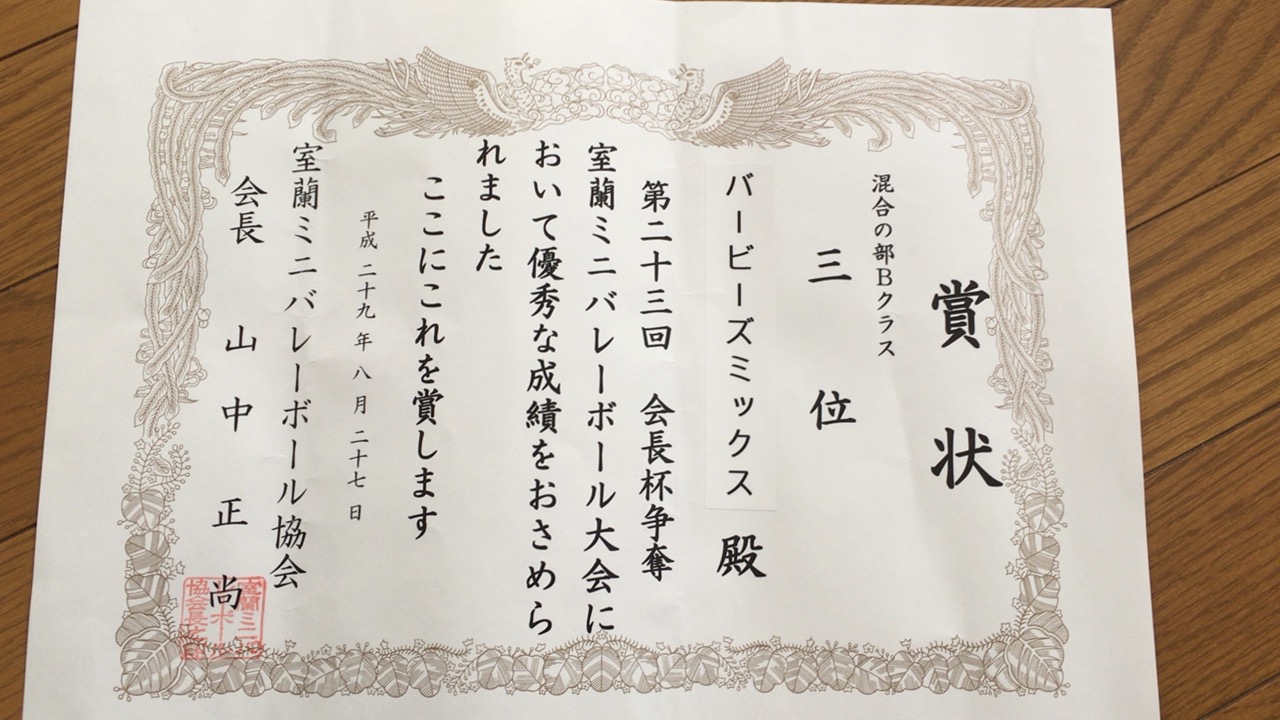 賞状
混合の部Bクラス
三位
バービーズミックス 殿
第二十三回 会長杯争奪
室蘭ミニバレーボール大会に
おいて優秀な成績をおさめら
れました
ここにこれを賞します
平成二十九年八月二十七日
室蘭ミニバレーボール協会
会長 山中正尚